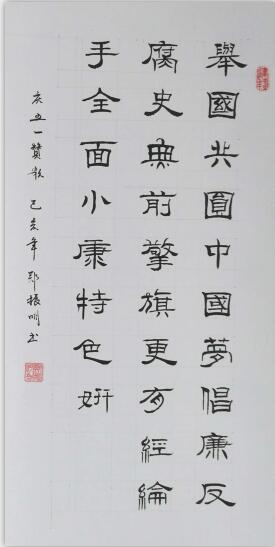 舉國共圓中國夢倡廉反
腐史無前擎旗更有經綸
手全面小康特色妍
己亥年 振明书